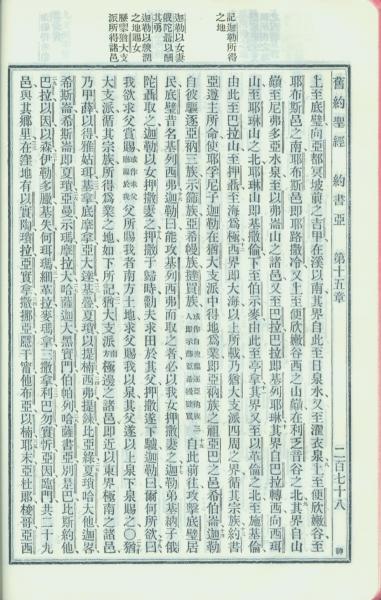 舊約聖經　約書亞　第十五章　二百七十八
記迦勒所得
之地
迦勒以女妻
俄陀聶以酬
其勇
迦勒以腴潤
之地賜女
歷舉猶大支
派所得諸邑
上至底璧向亞都冥坡前之吉甲在溪以南其界自此至日泉水又至濯衣泉上至便欣嫩谷至
耶布斯邑之南耶布斯邑即耶路撒冷又上至便欣嫩谷西之山顚在利乏音谷之北其界自山
顚至尼弗多亞水泉至以弗崙山之諸邑又至巴拉巴拉即基列耶琳其界自巴拉轉西向西珥
山至耶琳山之北耶琳山即基撒倫下至伯示麥由此至亭拿其界又至以革倫之北至施基倫
由此至巴拉山至押聶至海爲極西界即大海以上所載乃猶大支派四周之界循其宗族約書
亞遵主所命使耶孚尼子迦勒在猶大支派中得地爲業即亞衲族之祖亞巴之邑希伯崙迦勒
自彼驅逐亞衲三族示篩族亞希幔族達買族自此前往攻擊底璧居
民底璧昔名基列西弗迦勒曰能攻基列西弗而取之者必以我女押撒妻之迦勒弟基納子俄
陀聶取之迦勒以女押撒妻之押撒于歸時勸夫求田於其父押撒遂下驢迦勒曰爾何所欲曰
我欲求父賞賜或作求父賜福於我父所賜我者南方土地求父賜我以泉其父遂以上泉下泉賜之〇猶
大支派循其宗族所得爲業之地如下所記猶大支派南方極邊之諸邑即近以東界極南之諸邑
乃甲薛以得雅姑珥基拿底摩拿亞大達基疊夏瑣以提楠西弗提鍊比亞綠夏瑣哈大他
希斯崙希斯崙即夏瑣亞曼示瑪摩拉大哈薩迦大黑實門伯帕列哈薩書亞別是巴比斯約他
巴拉以因以森伊勒多臘基失何珥瑪細革拉麥瑪拿三撒拿利巴勿實忻亞因臨門共二十九
邑與其鄉里在窪地有以實陶瑣拉亞實拿撒挪亞隱干寧他布亞以楠耶末亞杜郎梭哥亞西